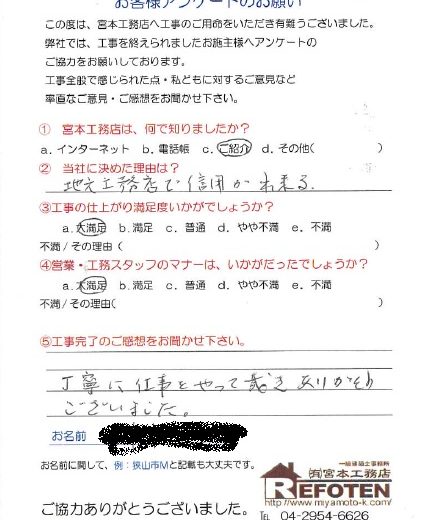 お客様アンケートのお願い
この度は、宮本工務店へ工事のご用命をいただき有難うございました。
弊社では、工事を終えられましたお施主様へアンケートの
ご協力をお願いしております。
工事全般で感じられた点・私どもに対するご意見など
率直なご意見・ご感想をお聞かせ下さい。
① 宮本工務店は、何で知りましたか?
a. インターネット b. 電話帳 c. ご紹介 d. その他( )
② 当社に決めた理由は?
地元工務店で信用が出来る.
③工事の仕上がり満足度いかがでしょうか?
a. 大満足 b. 満足 c. 普通 d. やや不満 e. 不満
不満/その理由( )
④営業・工務スタッフのマナーは、いかがだったでしょうか?
a. 大満足 b. 満足 c. 普通 d. やや不満 e. 不満
不満/その理由( )
⑤工事完了のご感想をお聞かせ下さい。
丁寧に仕事をやって戴きありがとう
ございました。
お名前
お名前に関して、例:狭山市Mと記載も大丈夫です。
一級建築士事務所
㈲宮本工務店
REFOTEN
http://www.miyamoto-k.com/
ご協力ありがとうございました。
TEL 04-2954-6626